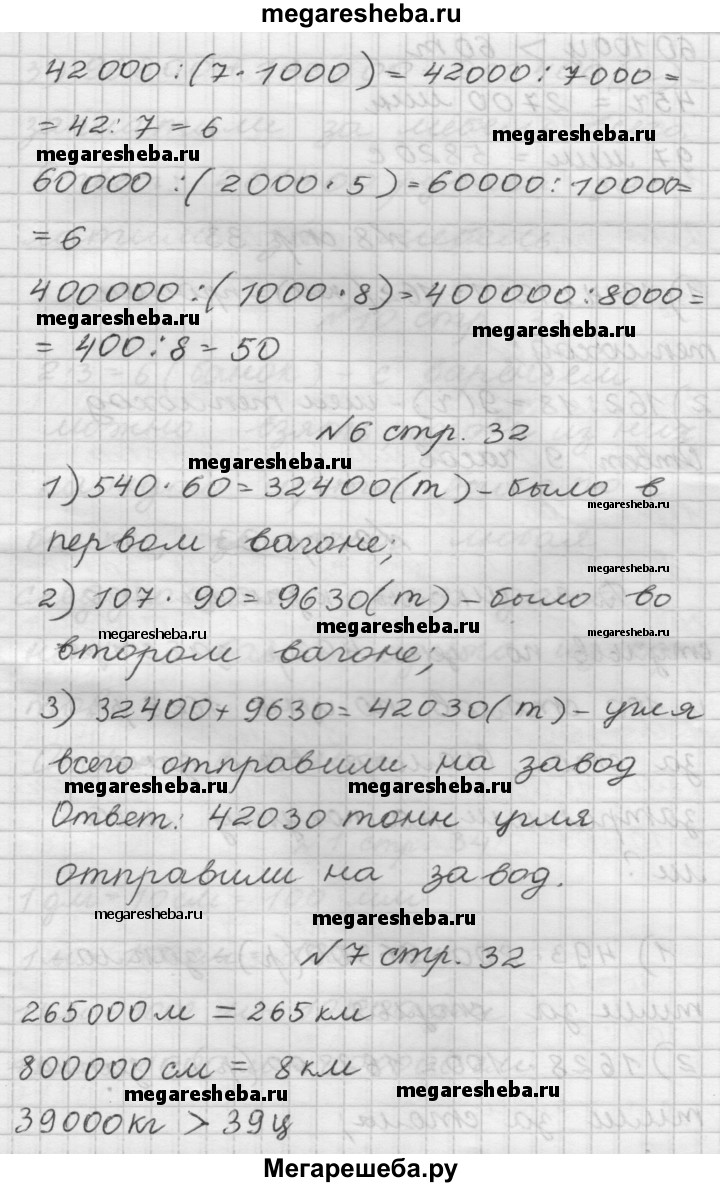 megaresheba.ru
42000:(7·1000)=42000:7000=
=42:7=6
megaresheba.ru
megaresheba.ru
60000:(2000·5)=60000:10000=
=6
400000:(1000·8)=400000:8000=
megaresheba.ru
megaresheba.ru
=400:8=50
№6 стр. 32
megaresheba.ru
1) 540·60=32400(т)-было в
megaresheba.ru
первом вагоне;
megaresheba.ru
2) 107·90=9630(т)-было во
megaresheba.ru
megaresheba.ru
megaresheba.ru
втором вагоне;
3) 32400+9630=42030(т)-угля
всего отправили на завод
megaresheba.ru
megaresheba.ru
Ответ: 42030 тонн угля
отправили на завод.
megaresheba.ru
megaresheba.ru
№7 стр. 32
265000м = 265км
800000см = 8км
megaresheba.ru
megaresheba.ru
39000кг > 39ц
Мегарешеба.ру